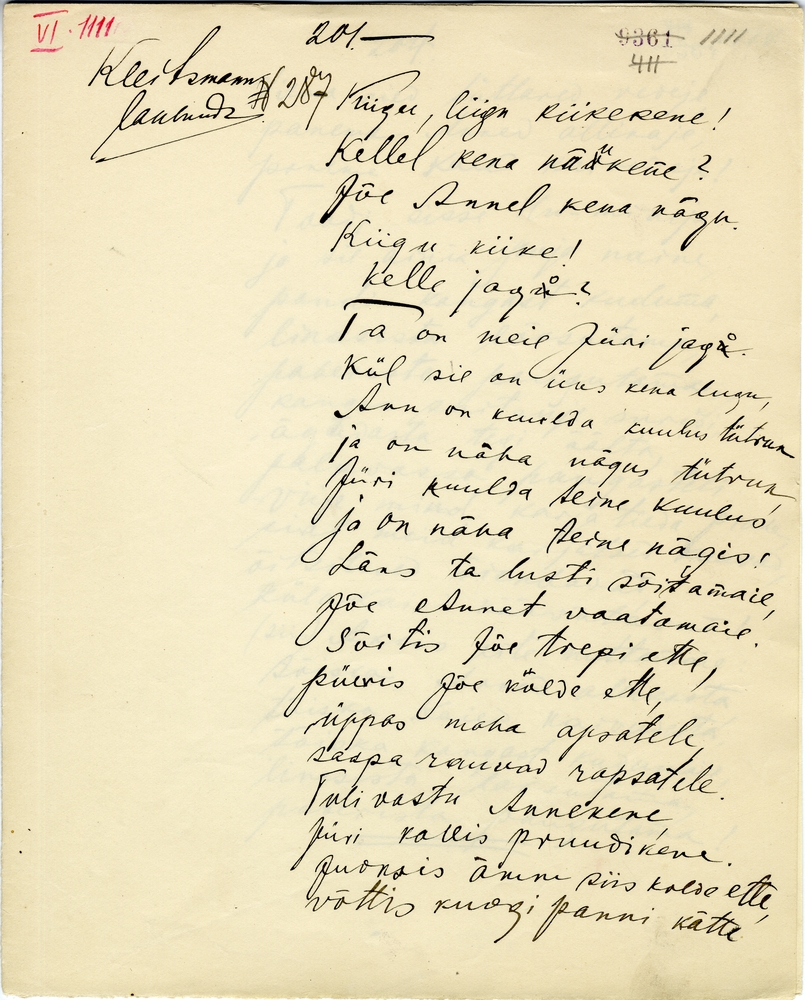 VI. 1111.
201.—
9361 1111
411
Kleitsmanni
lauludz # 287
Kiigu, liigu kiikekene!
Kellel kena näükene?
Jõe Annel kena nägu.
Kiigu kiike!
kelle jagu?
Ta on meie Jüri jagu.
Kül sie on üus kena lugu,
Ann on kuulda kuulus tütruk
ja on näha nägus tütruk,
Jüri kuulda teine kuulus
ja on näha teine nägis!
Läns ta lusti sõitamaie,
Jõe Annet vaatamaie.
Sõitis Jõe trepi ette,
püeris Jõe kõlde ette,
üppas maha apsatele,
saapa rauvad rapsatele.
Tuli vastu Annekene
Jüri kallis pruudikene.
Juonsis ämm siis kolde ette,
võttis kuogi panni kätte